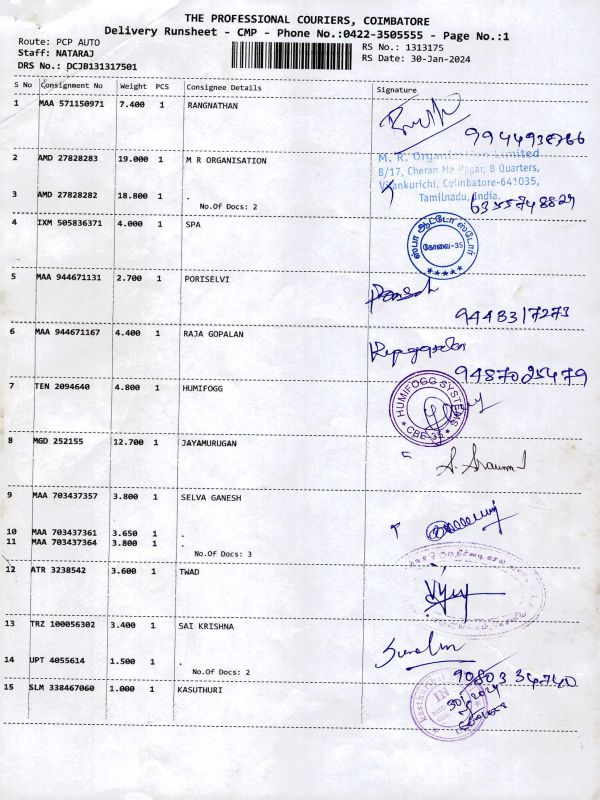 THE PROFESSIONAL COURIERS, COIMBATORE
Delivery Runsheet - CMP - Phone No.:0422-3505555 - Page No.:1
Route: PCP AUTO
Staff: NATARAJ
DRS No.: DCJB131317501
RS No.: 1313175
RS Date: 30-Jan-2024
S No Consignment No Weight PCS Consignee Details Signature
1 MAA 571150971 7.400 1 RANGNATHAN
2 AMD 27828283 19.000 1 M R ORGANISATION
M. R. Organisation Limited
8/17, Cheran Ma Nagar, B Quarters,
Vilankurichi, Coimbatore-641035,
Tamilnadu, India.
3 AMD 27828282 18.800 1 .
No.Of Docs: 2
6355748829
4 IXM 505836371 4.000 1 SPA
ஸ்பா ஆட்டோ ஸ்டோர்
கோவை-35
5 MAA 944671131 2.700 1 PORISELVI
9448317273
6 MAA 944671167 4.400 1 RAJA GOPALAN
9487025479
7 TEN 2094640 4.800 1 HUMIFOGG
HUMIFOGG SYSTEMS
CBE-35
8 MGD 252155 12.700 1 JAYAMURUGAN
9 MAA 703437357 3.800 1 SELVA GANESH
10 MAA 703437361 3.650 1 .
11 MAA 703437364 3.800 1 .
No.Of Docs: 3
12 ATR 3238542 3.600 1 TWAD
13 TRZ 100056302 3.400 1 SAI KRISHNA
14 UPT 4055614 1.500 1 .
No.Of Docs: 2
9080334740
15 SLM 338467060 1.000 1 KASUTHURI
IN
30/1/2024